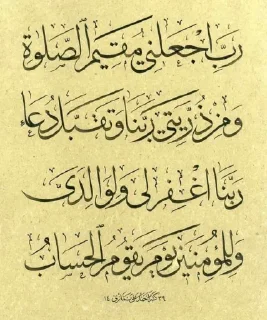 رَبِّ اجْعَلْنِي مُقِيمَ الصَّلٰوةِ
وَمِنْ ذُرِّيَّتِي رَبَّنَا وَتَقَبَّلْ دُعَاءِ
رَبَّنَا اغْفِرْ لِي وَلِوَالِدَيَّ
وَلِلْمُؤْمِنِينَ يَوْمَ يَقُومُ الْحِسَابُ